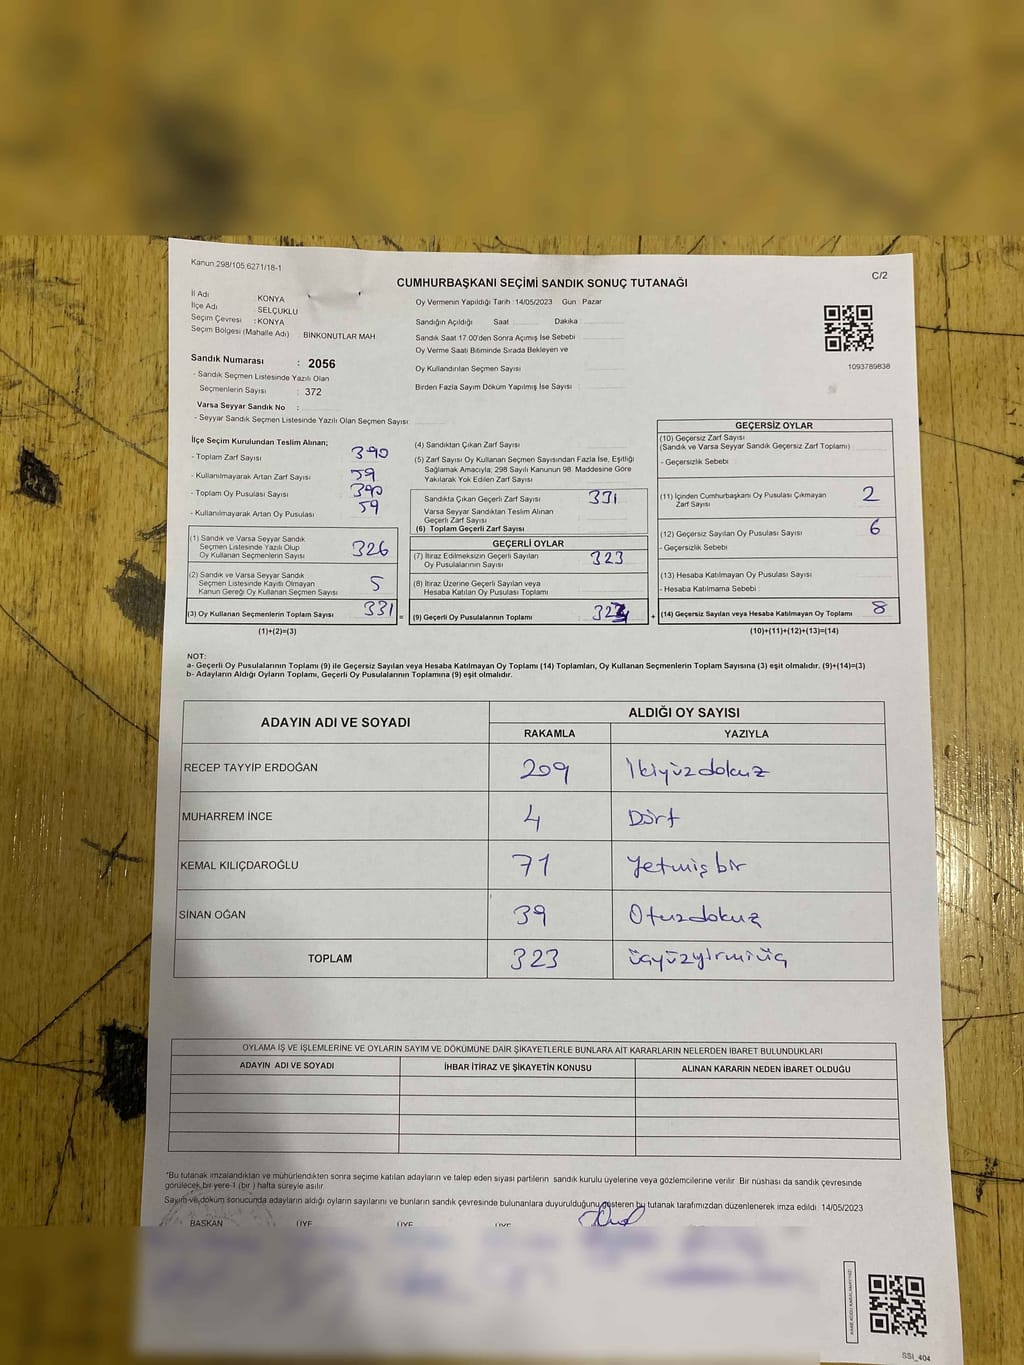 Kanun 298/105,6271/18-1
C/2
CUMHURBAŞKANI SEÇİMİ SANDIK SONUÇ TUTANAĞI
İl Adı KONYA
İlçe Adı SELÇUKLU
Seçim Çevresi : KONYA
Seçim Bölgesi (Mahalle Adı) : BİNKONUTLAR MAH
Sandık Numarası : 2056
- Sandık Seçmen Listesinde Yazılı Olan
Seçmenlerin Sayısı : 372
Varsa Seyyar Sandık No :
- Seyyar Sandık Seçmen Listesinde Yazılı Olan Seçmen Sayısı:
Oy Vermenin Yapıldığı Tarih : 14/05/2023 Gün : Pazar
Sandığın Açıldığı Saat Dakika
Sandık Saat 17.00'den Sonra Açımış İse Sebebi
Oy Verme Saati Bitiminde Sırada Bekleyen ve
Oy Kullandırılan Seçmen Sayısı
Birden Fazla Sayım Döküm Yapılmış İse Sayısı :
1093789838
İlçe Seçim Kurulundan Teslim Alınan;
- Toplam Zarf Sayısı 390
- Kullanılmayarak Artan Zarf Sayısı 59
- Toplam Oy Pusulası Sayısı 390
- Kullanılmayarak Artan Oy Pusulası 59
(1) Sandık ve Varsa Seyyar Sandık
Seçmen Listesinde Yazılı Olup
Oy Kullanan Seçmenlerin Sayısı 326
(2) Sandık ve Varsa Seyyar Sandık
Seçmen Listesinde Kayıtlı Olmayan
Kanun Gereği Oy Kullanan Seçmen Sayısı 5
(3) Oy Kullanan Seçmenlerin Toplam Sayısı 331 =
(1)+(2)=(3)
(4) Sandıktan Çıkan Zarf Sayısı
(5) Zarf Sayısı Oy Kullanan Seçmen Sayısından Fazla İse, Eşitliği
Sağlamak Amacıyla; 298 Sayılı Kanunun 98. Maddesine Göre
Yakılarak Yok Edilen Zarf Sayısı
Sandıkta Çıkan Geçerli Zarf Sayısı 331
Varsa Seyyar Sandıktan Teslim Alınan
Geçerli Zarf Sayısı
(6) Toplam Geçerli Zarf Sayısı
GEÇERLİ OYLAR
(7) İtiraz Edilmeksizin Geçerli Sayılan
Oy Pusulalarının Sayısı 323
(8) İtiraz Üzerine Geçerli Sayılan veya
Hesaba Katılan Oy Pusulası Toplamı
(9) Geçerli Oy Pusulalarının Toplamı +
GEÇERSİZ OYLAR
(10) Geçersiz Zarf Sayısı
(Sandık ve Varsa Seyyar Sandık Geçersiz Zarf Toplamı)
- Geçersizlik Sebebi
(11) İçinden Cumhurbaşkanı Oy Pusulası Çıkmayan
Zarf Sayısı 2
(12) Geçersiz Sayılan Oy Pusulası Sayısı 6
- Geçersizlik Sebebi
(13) Hesaba Katılmayan Oy Pusulası Sayısı
- Hesaba Katılmama Sebebi :
(14) Geçersiz Sayılan veya Hesaba Katılmayan Oy Toplamı 8
(10)+(11)+(12)+(13)=(14)
NOT:
a- Geçerli Oy Pusulalarının Toplamı (9) ile Geçersiz Sayılan veya Hesaba Katılmayan Oy Toplamı (14) Toplamları, Oy Kullanan Seçmenlerin Toplam Sayısına (3) eşit olmalıdır. (9)+(14)=(3)
b- Adayların Aldığı Oyların Toplamı, Geçerli Oy Pusulalarının Toplamına (9) eşit olmalıdır.
ADAYIN ADI VE SOYADI ALDIĞI OY SAYISI
RAKAMLA YAZIYLA
RECEP TAYYİP ERDOĞAN 209 İkiyüzdokuz
MUHARREM İNCE 4 Dört
KEMAL KILIÇDAROĞLU 71 Yetmişbir
SİNAN OĞAN 39 Otuzdokuz
TOPLAM 323 üçyüzyirmiüç
OYLAMA İŞ VE İŞLEMLERİNE VE OYLARIN SAYIM VE DÖKÜMÜNE DAİR ŞİKAYETLERLE BUNLARA AİT KARARLARIN NELERDEN İBARET BULUNDUKLARI
ADAYIN ADI VE SOYADI İHBAR İTİRAZ VE ŞİKAYETİN KONUSU ALINAN KARARIN NEDEN İBARET OLDUĞU
*Bu tutanak imzalandıktan ve mühürlendikten sonra seçime katılan adayların ve talep eden siyasi partilerin sandık kurulu üyelerine veya gözlemcilerine verilir. Bir nüshası da sandık çevresinde
görülecek bir yere 1 (bir) hafta süreyle asılır.
Sayım ve döküm sonucunda adayların aldığı oyların sayılarını ve bunların sandık çevresinde bulunanlara duyurulduğunu gösteren bu tutanak tarafımızdan düzenlenerek imza edildi. 14/05/2023
BAŞKAN ÜYE ÜYE ÜYE
SSI_404